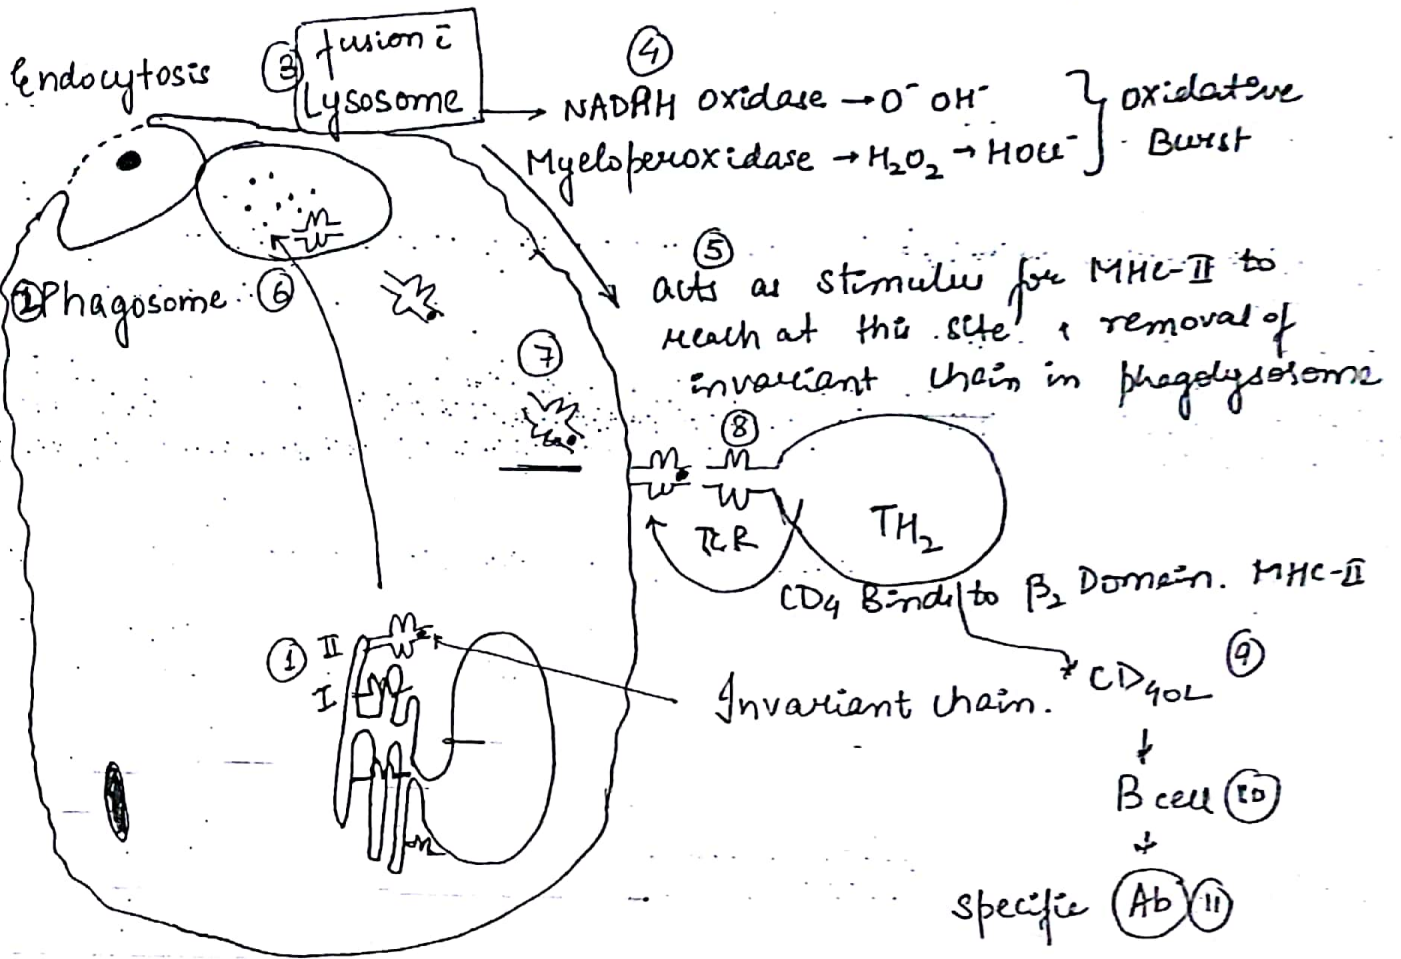 Endocytosis
③ fusion c̄
Lysosome
④
NADPH oxidase → O⁻ OH⁻
Myeloperoxidase → H₂O₂ → HOCl⁻
} oxidative
Burst
②Phagosome
⑥
⑤
acts as stimulus for MHC-II to
reach at this site & removal of
invariant chain in phagolysosome
⑦
⑧
TCR
TH₂
CD₄ Binds to β₂ Domain. MHC-II
① II
I
Invariant chain.
CD₄₀L ⑨
↓
B cell ⑩
↓
specific Ab ⑪